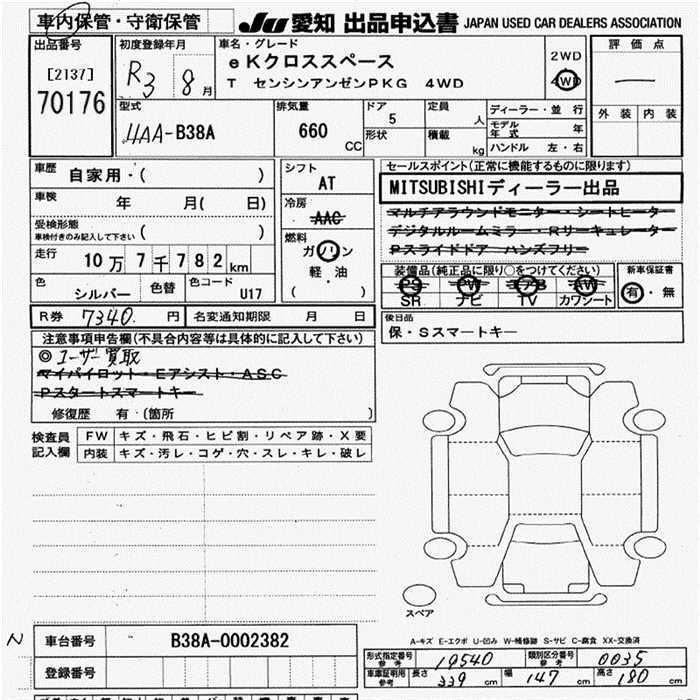 車内保管・守衛保管
JU 愛知 出品申込書 JAPAN USED CAR DEALERS ASSOCIATION
出品番号
[2137]
70176
初度登録年月
R3 8月
車名・グレード
eKクロススペース
T センシンアンゼンPKG 4WD
2WD
4WD
評価点
外装 内装
型式
4AA-B38A
排気量
660
CC
ドア
5
形状
定員
人
積載
kg
ディーラー・並行
モデル年式 年
ハンドル 左・右
車歴 自家用・( )
車検 年 月( 日)
受検形態
車検付きのみ記入して下さい ( )
走行 10万7千782km
色 シルバー 色替 色コード U17
シフト
AT
冷房
AAC
燃料
ガソリン
軽・油
( )
セールスポイント(正常に機能するものに限ります)
MITSUBISHIディーラー出品
マルチアラウンドモニター・シートヒーター
デジタルルームミラー・Rサーキュレーター
Pスライドドア ハンズフリー
装備品(純正品に限り○をつけてください)
PS PW エアB AW
SR ナビ TV カワシート
新車保証書
有・無
R券 7340 円 名変通知期限 月 日
後日品
保・Sスマートキー
注意事項申告欄(不具合内容等は具体的に記入して下さい)
◎ユーザー買取
マイパイロット・Eアシスト・ASC
Pスタートスマートキー
修復歴 有・(箇所 )
検査員記入欄
FW キズ・飛石・ヒビ割・リペア跡・X要
内装 キズ・汚レ・コゲ・穴・スレ・キレ・破レ
スペア
A-キズ E-エクボ U-凹み W-補修跡 S-サビ C-腐食 XX-交換済
N
車台番号 B38A-0002382
登録番号
形式指定番号 参考 19540 類別区分番号 参考 0035
車庫証明用 参考 長さ 339 cm 幅 147 cm 高さ 180 cm